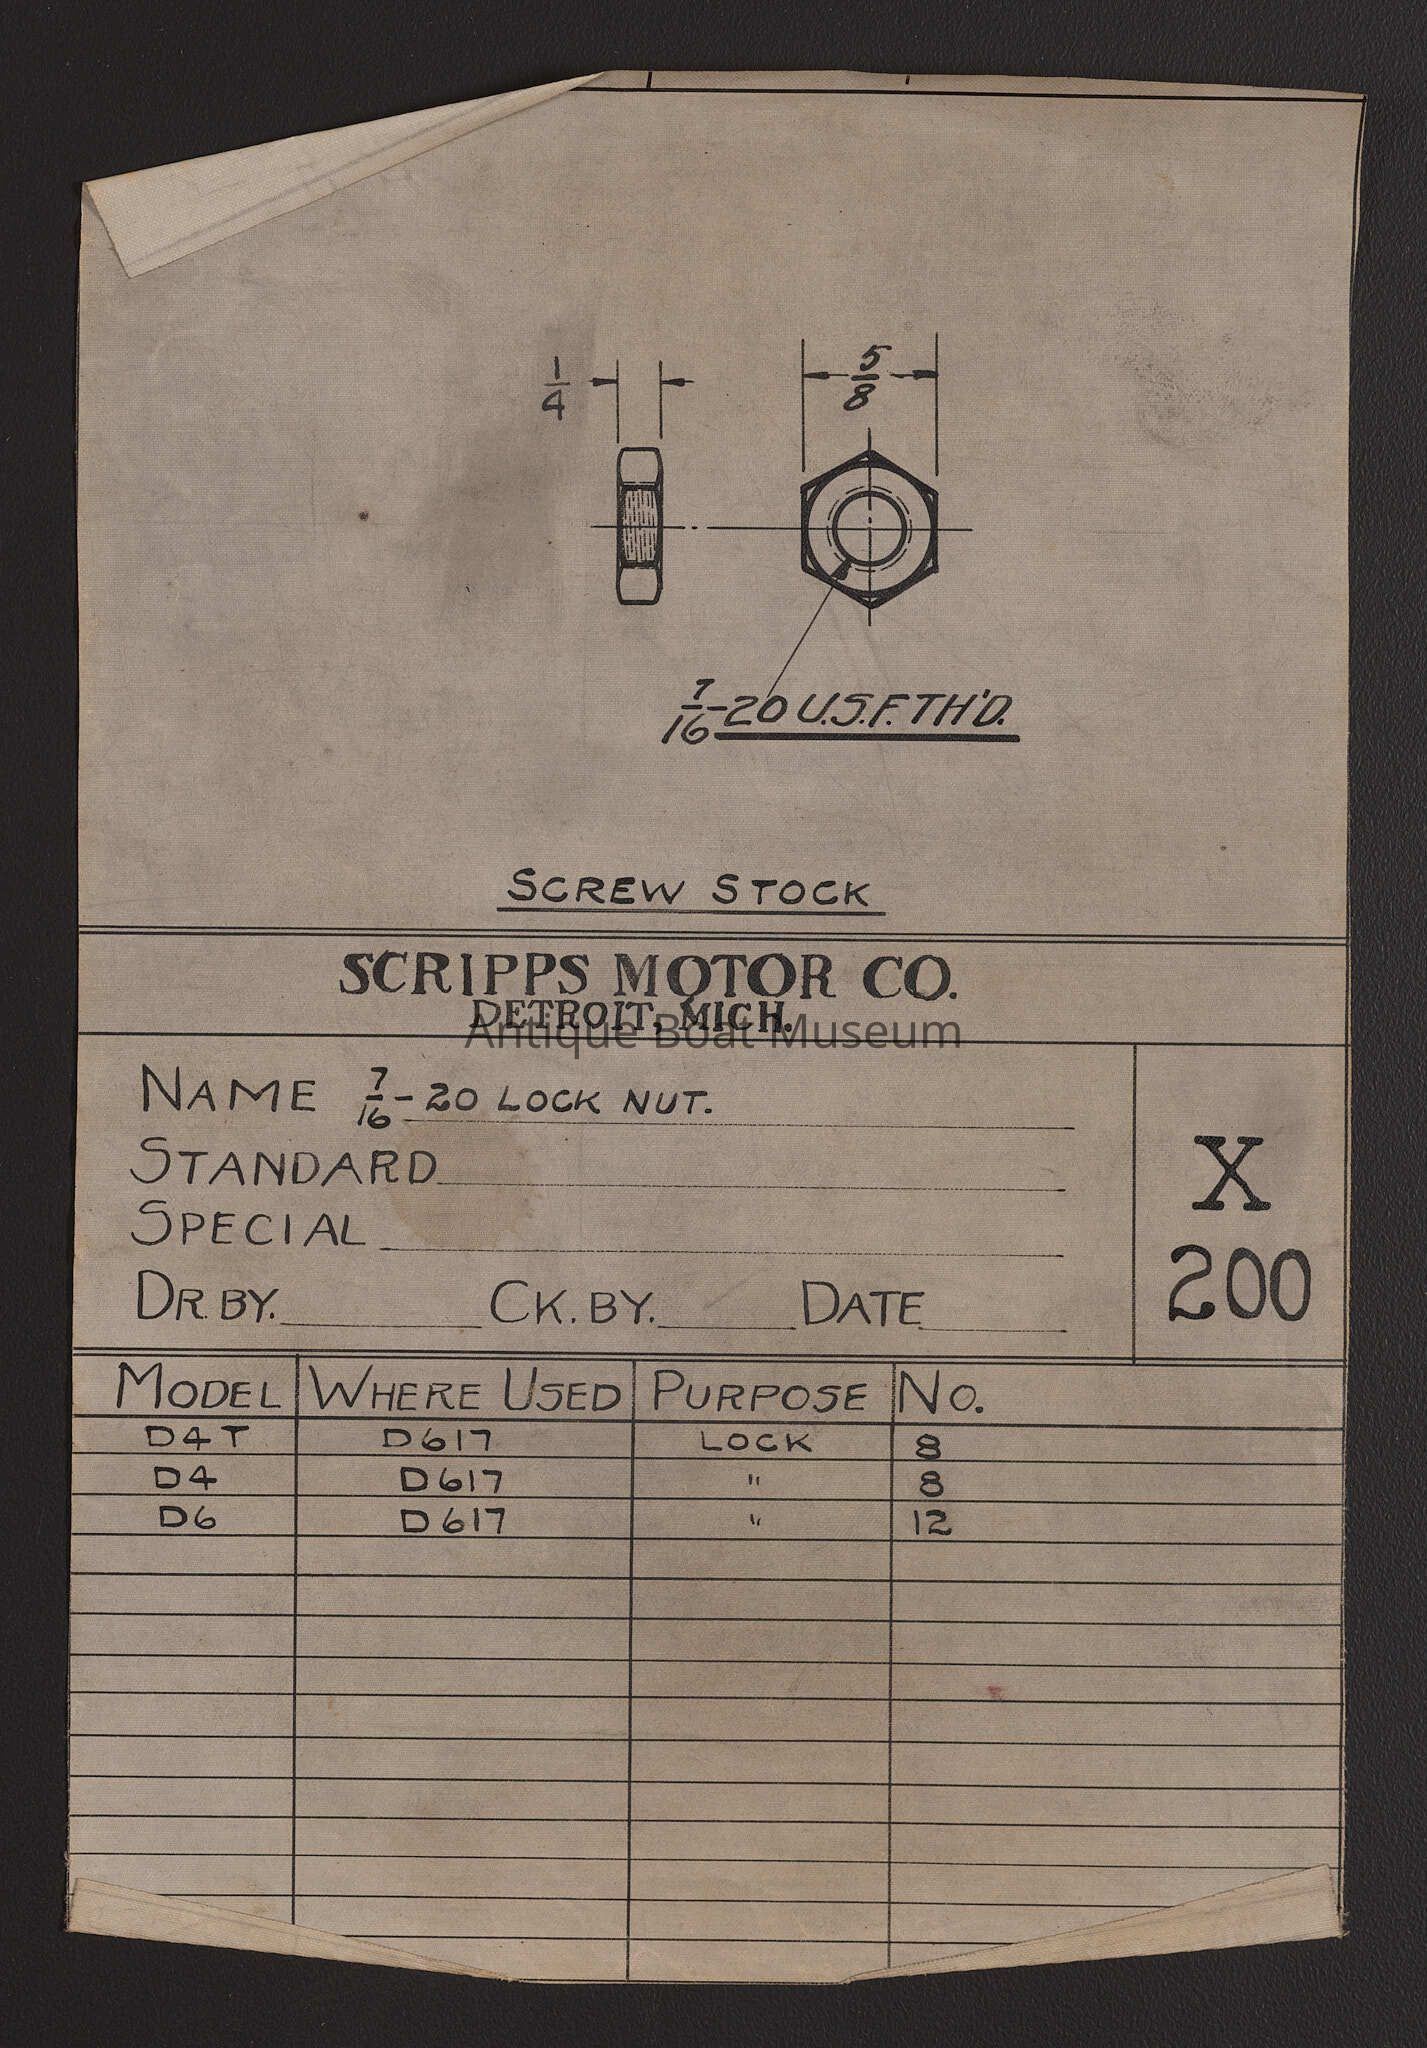 1/4
5/8
7/16-20 U.S.F. TH'D.
SCREW STOCK
SCRIPPS MOTOR CO.
DETROIT, MICH.
Antique Boat Museum
NAME 7/16-20 LOCK NUT.
STANDARD
SPECIAL
DR. BY. CK. BY. DATE
X
200
MODEL WHERE USED PURPOSE NO.
D4T D617 LOCK 8
D4 D617 " 8
D6 D617 " 12